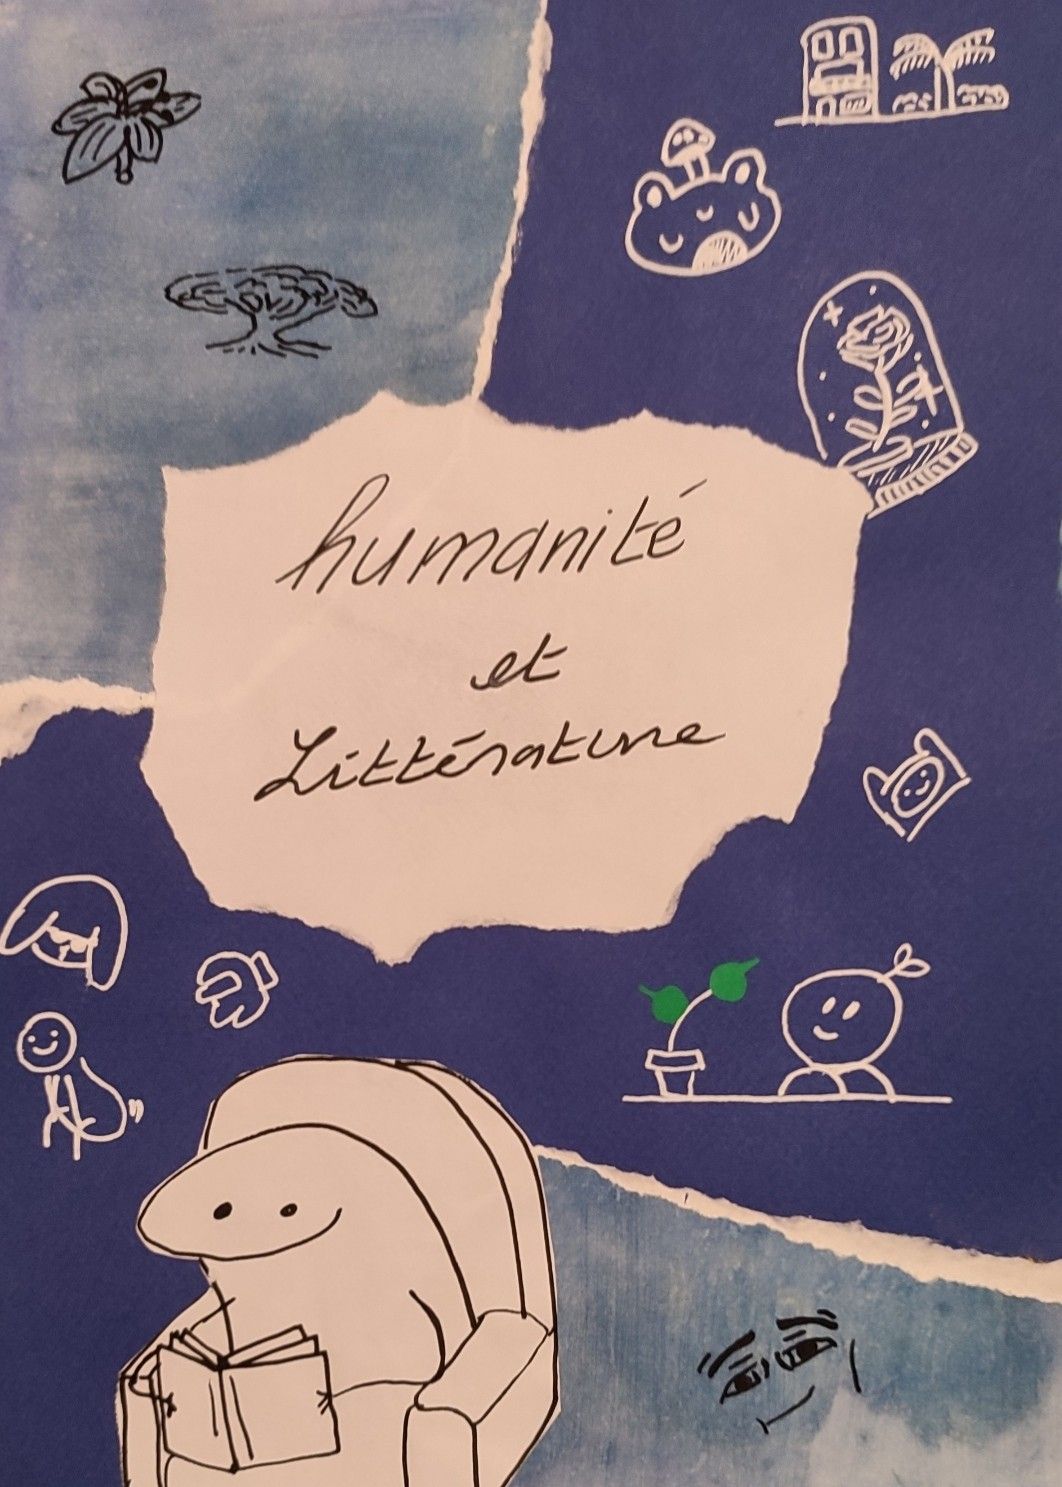 humanité
et
Littérature